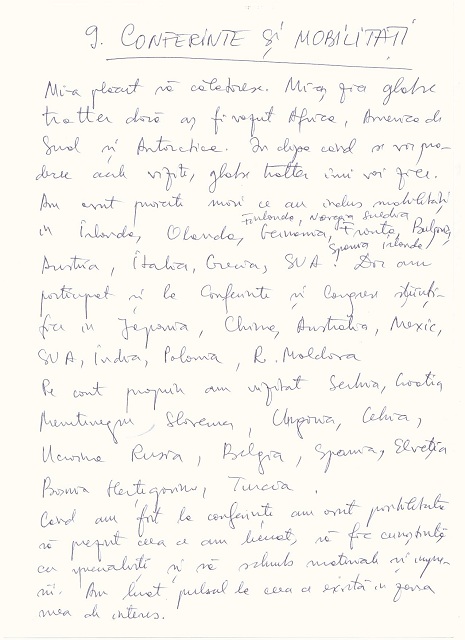 9. CONFERINTE ȘI MOBILITĂȚI
Mi-a plăcut să călătoresc. Mi-aș zice globe
trotter dacă aș fi văzut Africa, America de
Sud și Antarctica. În clipa când se vor pro-
duce aceste vizite, globe trotter îmi voi zice.
Am avut proiecte mari ce au inclus mobilități
Finlanda, Norvegia Suedia
în Irlanda, Olanda, Germania, Franța, Belgia,
Spania Irlanda
Austria, Italia, Grecia, SUA. Dar am
participat și la Conferințe și Congrese științi-
fice in Japonia, China, Australia, Mexic,
SUA, India, Polonia, R. Moldova
Pe cont propriu am vizitat Serbia, Croatia
Muntenegru, Slovenia, Ungaria, Cehia,
Ucraina Rusia, Belgia, Spania, Elveția
Bosnia Hertegovina, Turcia.
Când am fost la conferințe am avut posibilitatea
să prezint ceea ce am lucrat, să fac cunoștință
cu specialiști și să schimb materiale și impre-
sii. Am luat pulsul la ceea ce există în zona
mea de interes.